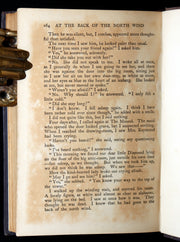 264 AT THE BACK OF THE NORTH WIND
They be wiseacres, but, I confess, appeared more thought-
ful than satisfied.
The next time I saw him, he looked paler than usual.
"Have you seen your friend again?" I asked him.
"Yes," he answered, solemnly.
"Did she take you out with her?"
"No. She did not speak to me. I woke all at once,
as I generally do when I am going to see her, and there
she was against the door into the big room, sitting
as I saw her sit on her own doorstep, as white as snow,
and her eyes as blue as the heart of an iceberg. She looked
at me, but never moved or spoke."
"Weren't you afraid?" I asked.
"No. Why should I?" he answered. "I only felt a
little cold."
"Did she stay long?"
"I don't know. I fell asleep again. I think I have
been rather cold ever since though," he added with a smile.
I did not quite like this, but I said nothing.
Four days after, I called again at The Mound. The maid
who opened the door looked grave, but I suspected nothing.
When I reached the drawing-room, I saw Mrs. Raymond
had been crying.
"Haven't you heard?" she said, seeing my questioning
looks.
"I've heard nothing," I answered.
"This morning we found our dear little Diamond lying
on the floor of the big attic-room, just outside his own door
—fast asleep, as we thought. But when we took him up,
we did not think he was asleep. We saw that——"
Here the kind-hearted lady broke out crying afresh.
"May I go and see him?" I asked.
"Yes," she sobbed. "You know your way to the top of
the tower."
I walked up the winding stair, and entered his room.
A lovely figure, as white and almost as clear as alabaster,
was lying on the bed. I saw at once how it was. They
thought he was dead. I knew that he had gone to the
back of the north wind.